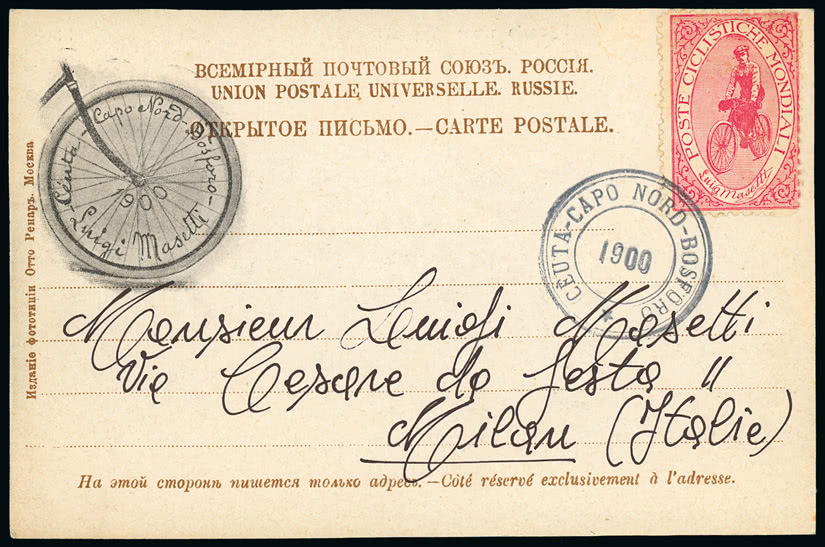 ВСЕМІРНЫЙ ПОЧТОВЫЙ СОЮЗЪ. РОССІЯ.
UNION POSTALE UNIVERSELLE. RUSSIE.
ОТКРЫТОЕ ПИСЬМО.—CARTE POSTALE.
Ceuta-Capo Nord-Bosforo-
1900
Luigi Masetti
POSTE CICLISTICHE MONDIALI
Luigi Masetti
CEUTA-CAPO NORD-BOSFORO
1900
Изданіе фототипіи Отто Ренаръ. Москва
Monsieur Luigi Masetti
Via Cesare da Sesto "
Milan (Italie)
На этой сторонѣ пишется только адресъ.—Côté réservé exclusivement à l'adresse.